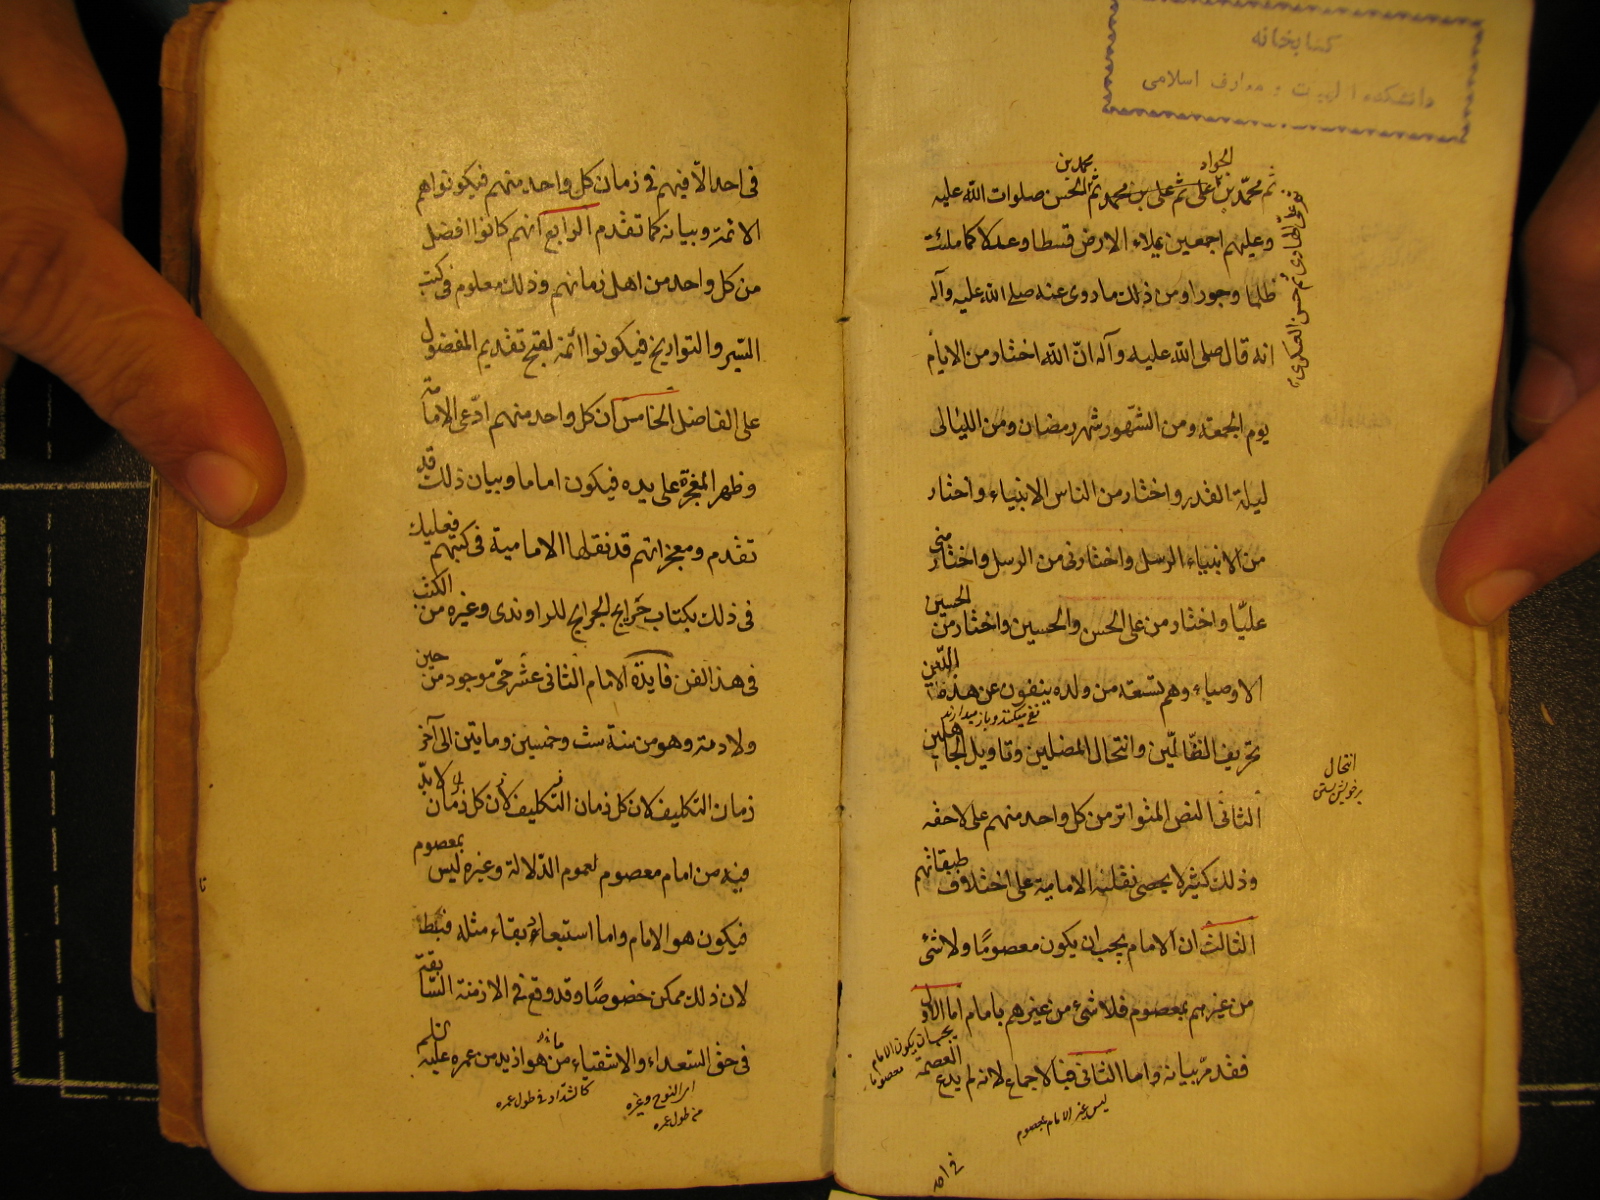 كتابخانه
دانشكده الهيات و معارف اسلامى
الجواد
محمد بن
ثم محمّد بن على ثم على بن محمد ثم الحسن صلوات الله عليه
ثم على الهادى ثم حسن العسكرى
وعليهم اجمعين يملاء الارض قسطا وعدلا كما ملئت
ظلما وجورا ومن ذلك ما روى عنه صلى الله عليه وآله
انه قال صلى الله عليه وآله انّ الله اختار من الايام
يوم الجمعة ومن الشّهور شهر رمضان ومن الليالى
ليلة القدر واختار من الناس الانبياء واختار
من الانبياء الرسل واختارنى من الرسل واختار منى
عليّا واختار من على الحسن والحسين واختار من الحسين
الاوصياء وهم تسعة من ولده ينفون عن هذا الدّين
نفى ميكنند و باز ميدارند
تحريف الضّالّين وانتحال المضلين وتاويل الجاهلين
انتحال
برخويش بستن
الثانى النص المتواتر من كل واحد منهم على لاحقه
وذلك كثيرة لا يحصى نقلته الامامية على اختلاف طبقاتهم
الثالث ان الامام يجب ان يكون معصومًا ولا شئ
من غيرهم بمعصوم فلا شئ من غيرهم بامام اما الاول
يجب ان يكون الامام
معصوما
فقد مرّ بيانه واما الثانى فبالاجماع لانه لم يدع العصمة
ليس غير الامام بمعصوم
فى احد
فى احد الّا فيهم فى زمان كل واحد منهم فيكونوا هم
الائمة وبيانه كما تقدم الرابع انهم كانوا افضل
من كل واحد من اهل زمانهم وذلك معلوم فى كتب
السّير والتواريخ فيكونوا ائمة لقبح تقديم المفضول
على الفاضل الخامس ان كل واحد منهم ادّعى الامامة
وظهر المعجزة على يده فيكون اماما وبيان ذلك قد
تقدم ومعجزاتهم قد نقلها الامامية فى كتبهم فعليك
فى ذلك بكتاب خرايج الجرايح للراوندى وغيره من الكتب
فى هذا الفن فايدة الامام الثانى عشر حىّ موجود من حين
ولادته وهو من سنة ست وخمسين ومايتين الى آخر
زمان التكليف لان كل زمان التكليف لان كل زمان لا بدّ
فيه من امام معصوم لعموم الدّلالة وغيره ليس بمعصوم
فيكون هو الامام واما استبعاد بقاء مثله فباطل
لان ذلك ممكن خصوصًا وقد وقع فى الازمنة السّابقة
فى حق السّعداء والاشقياء من هو ازيد من عمره عليه السّلم
كالشدّاد فى طول عمره
من طول عمره